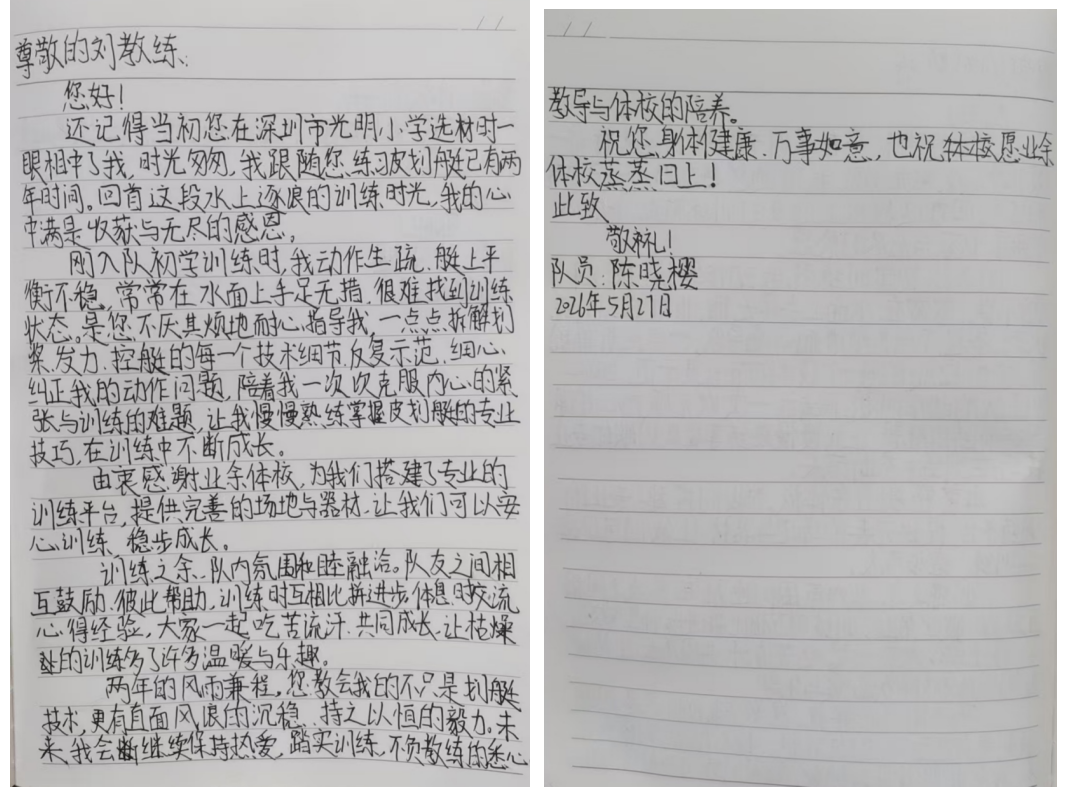 尊敬的刘教练：
您好！
还记得当初您在深圳市光明小学选材时一
眼相中了我，时光匆匆，我跟随您练习皮划艇已有两
年时间。回首这段水上逐浪的训练时光，我的心
中满是收获与无尽的感恩。
刚入队初学训练时，我动作生疏、艇上平
衡不稳，常常在水面上手足无措，很难找到训练
状态。是您不厌其烦地耐心指导我，一点点拆解划
桨、发力、控艇的每一个技术细节，反复示范，细心
纠正我的动作问题，陪着我一次次克服内心的紧
张与训练的难题，让我慢慢熟练掌握皮划艇的专业
技巧，在训练中不断成长。
由衷感谢业余体校，为我们搭建了专业的
训练平台，提供完善的场地与器材，让我们可以安
心训练，稳步成长。
训练之余，队内氛围和睦融洽。队友之间相
互鼓励、彼此帮助，训练时互相比拼进步，休息时交流
心得经验，大家一起吃苦流汗、共同成长，让枯燥
的训练多了许多温暖与乐趣。
两年的风雨兼程，您教会我的不只是划艇
技术，更有直面风浪的沉稳、持之以恒的毅力。未
来，我会继续保持热爱，踏实训练，不负教练的悉心
教导与体校的培养。
祝您身体健康、万事如意，也祝体校愿业余
体校蒸蒸日上！
此致
敬礼！
队员：陈晓樱
2026年5月27日